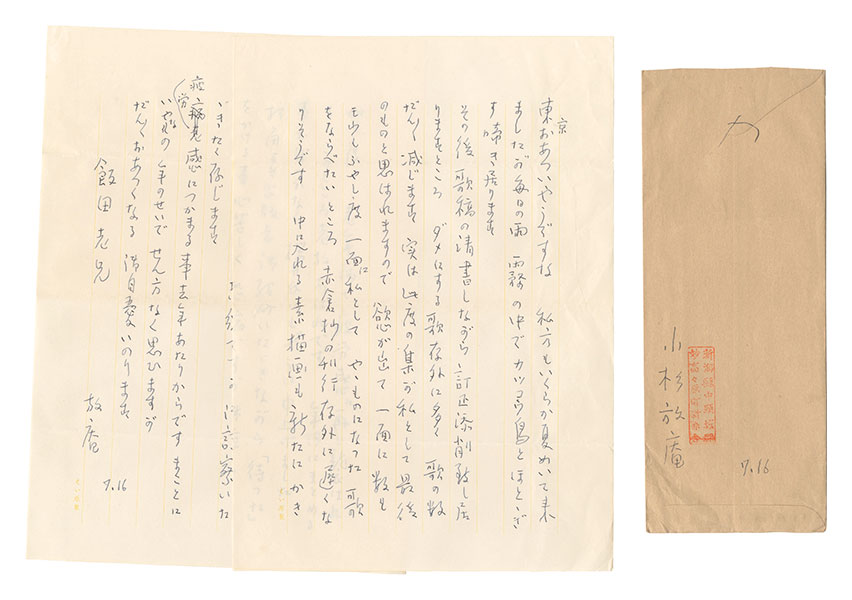 東京おあついやうですな 私方もいくらか夏めいて来
ましたが毎日の雨 霧の中でカツコウ鳥とほとゝぎ
す啼き居ります
その後歌稿の清書しながら 訂正添削致し居
りますところ ダメにする歌存外に多く 歌の数
だん〱減じます 実は此度の集が私として最後
のものと思はれますので 欲が出て 一面に数も
ふやし度 一面に私として やゝものになつた歌
をならべたいところ 赤倉抄の刊行存外に遅くな
りそうです 中に入れる素描画も新たにかき
たく存じます
御諒察いた
疲労感につかまる事去年あたりからです まことに
年のせいで せん方なく思ひますが
だん〱おあつくなる 御自愛いのります
放庵
7.16
飯田老兄
新潟県中頸城郡
小杉放庵
7.16